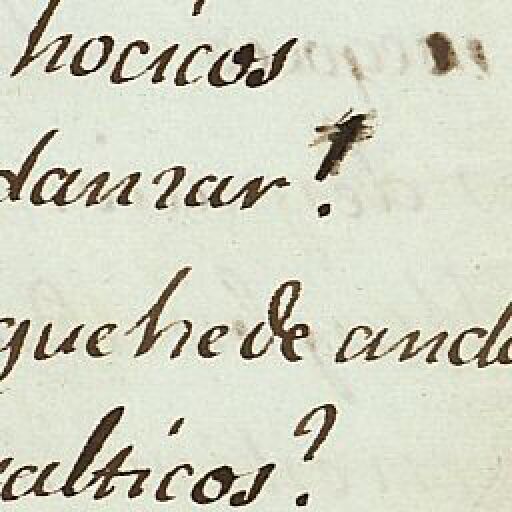 hocicos
danzar!
que he de anda
alticos?